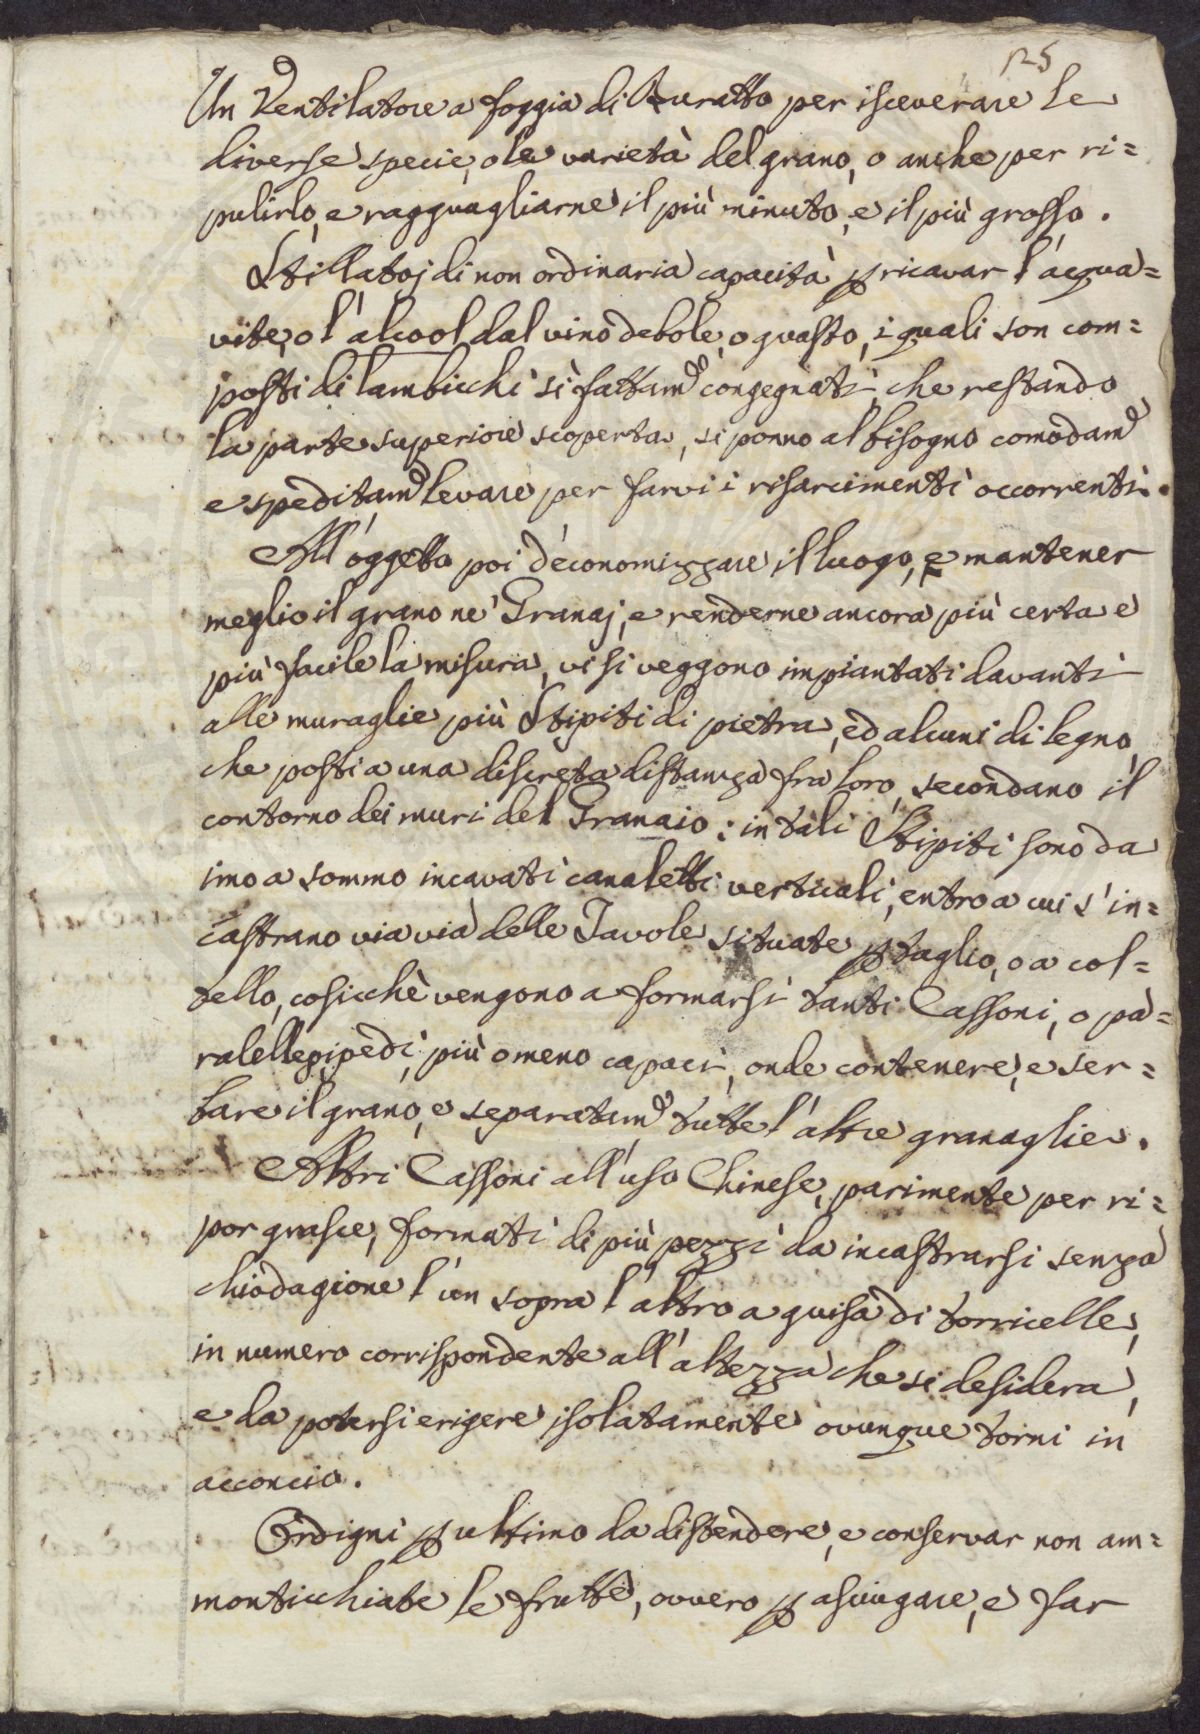 125
Un Ventilatore a foggia di Buratto per isceverare le
diverse specie, o le varietà del grano, o anche per ri=
pulirlo, e ragguagliarne il più minuto, e il più grosso.
Stillatoj di non ordinaria capacità p ricavar l'acqua=
vite, o l'alcool dal vino debole, o guasto, i quali son com=
posti di lambicchi sì fattam.e congegnati, che restando
la parte superiore scoperta, si ponno al bisogno comodam.e
e speditam.e levare per farvi i risarcimenti occorrenti.
All'oggetto poi d'economizzare il luogo, e mantener
meglio il grano ne' Granaj, e renderne ancora più certa e
più facile la misura, vi si veggono impiantati davanti
alle muraglie più Stipiti di pietra, ed alcuni di legno,
che posti a una discreta distanza fra loro, secondano il
contorno dei muri del Granaio: in tali Stipiti sono da
imo a sommo incavati canaletti verticali, entro a cui s'in=
castrano via via delle Tavole situate p taglio, o a col=
tello, cosicchè vengono a formarsi tanti Cassoni, o pa=
ralellepipedi, più o meno capaci, onde contenere, e ser=
bare il grano, e separatam.e tutte l'altre granaglie.
Altri Cassoni all'uso Chinese, parimente per ri=
por grasce, formati di più pezzi da incastrarsi senza
chiodagione l'un sopra l'altro a guisa di torricelle,
in numero corrispondente all'altezza che si desidera,
e da potersi erigere isolatamente ovunque torni in
acconcio.
Ordigni p ultimo da distendere, e conservar non am=
monticchiate le frutte, ovvero p asciugare, e far